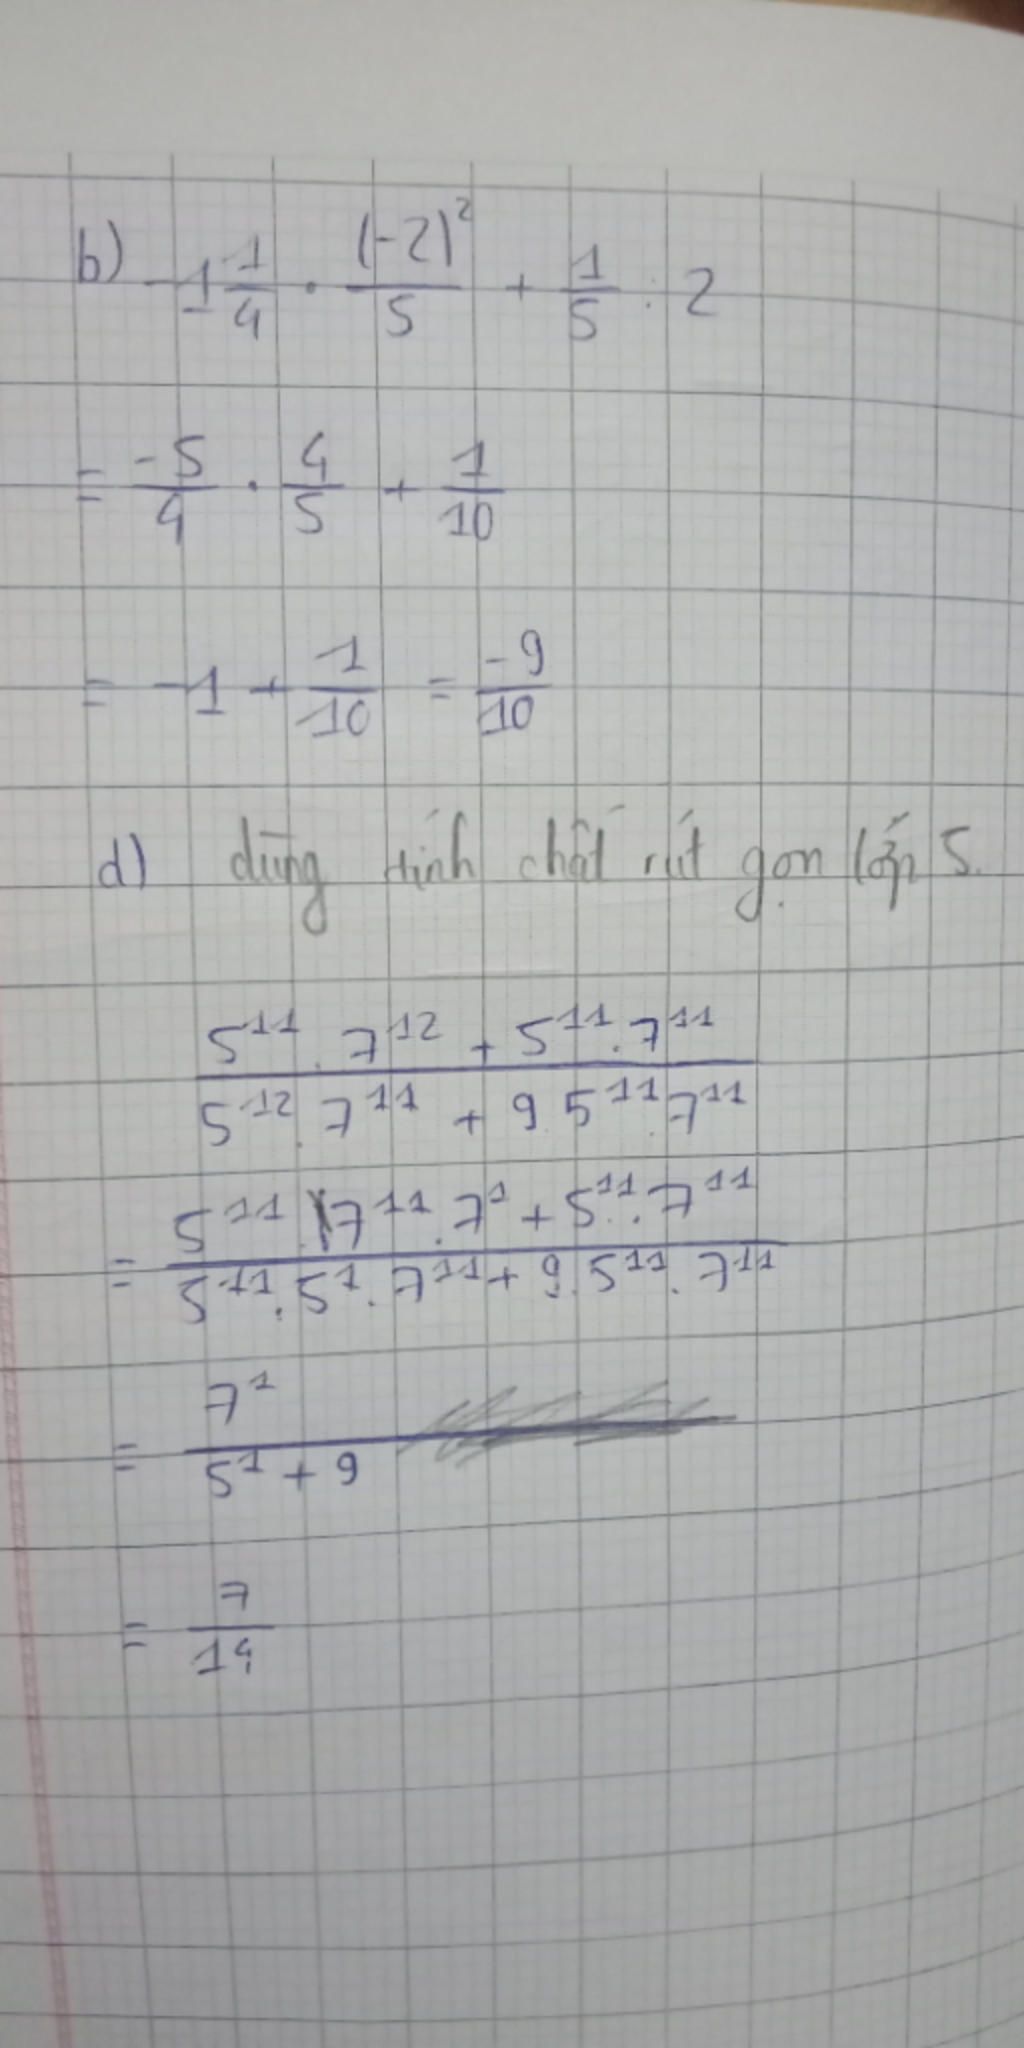 b) -1 1/4 . (-2)²/5 + 1/5 : 2
= -5/4 . 4/5 + 1/10
= -1 + 1/10 = -9/10
d) dùng tính chất rút gọn lớp 5.
5¹¹ . 7¹² + 5¹¹ . 7¹¹
5¹² . 7¹¹ + 9 . 5¹¹ . 7¹¹
= 5¹¹ . 7¹¹ . 7¹ + 5¹¹ . 7¹¹
5¹¹ . 5¹ . 7¹¹ + 9 . 5¹¹ . 7¹¹
= 7¹
5¹ + 9
= 7
14